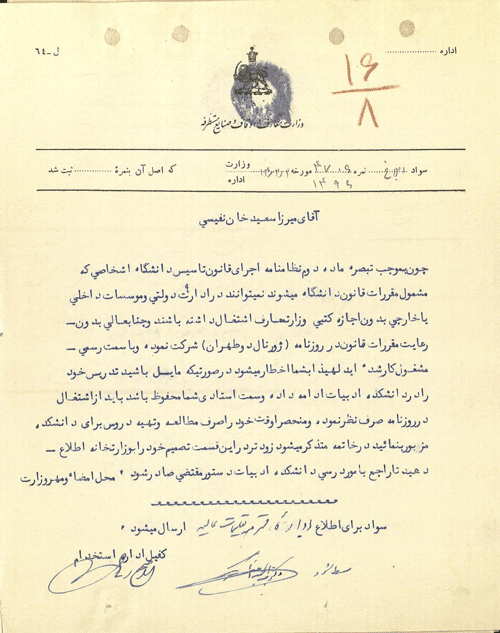 ل-٦٤
اداره
١٦
٨
وزارت معارف و اوقاف و صنایع مستظرفه
سواد نمره مورخه وزارت اداره که اصل آن بنمرهٔ ثبت شد
آقای میرزا سعید خان نفیسی
چون بموجب تبصره ماده دوم نظامنامه اجرای قانون تاسیس دانشگاه اشخاصی که
مشمول مقررات قانون دانشگاه میشوند نمیتوانند در ادارات دولتی وموسسات داخلی
یا خارجی بدون اجازه کتبی وزارت معارف اشتغال داشته باشند و جنابعالی بدون ــ
رعایت مقررات قانون در روزنامه (ژورنال دو طهران) شرکت نموده و باسمت رسمی ــ
مشغول کار شده اید لهذا بشما اخطار میشود در صورتیکه مایل باشید تدریس خود
را در دانشکده ادبیات ادامه داده وسمت استادی شما محفوظ باشد باید از اشتغال
در روزنامه صرف نظر نموده ومنحصرا وقت خود را صرف مطالعه وتهیه دروس برای دانشکده
مزبور بنمائید در خاتمه متذکر میشود زودتر در این قسمت تصمیم خود را بوزارتخانه اطلاع ــ
دهید تا راجع بامور درسی دانشکده ادبیات دستور مقتضی صادر شود ٠ محل امضاء ومهر وزارت
سواد برای اطلاع اداره تعلیمات عالیه ارسال میشود ٠
کفیل اداره استخدام